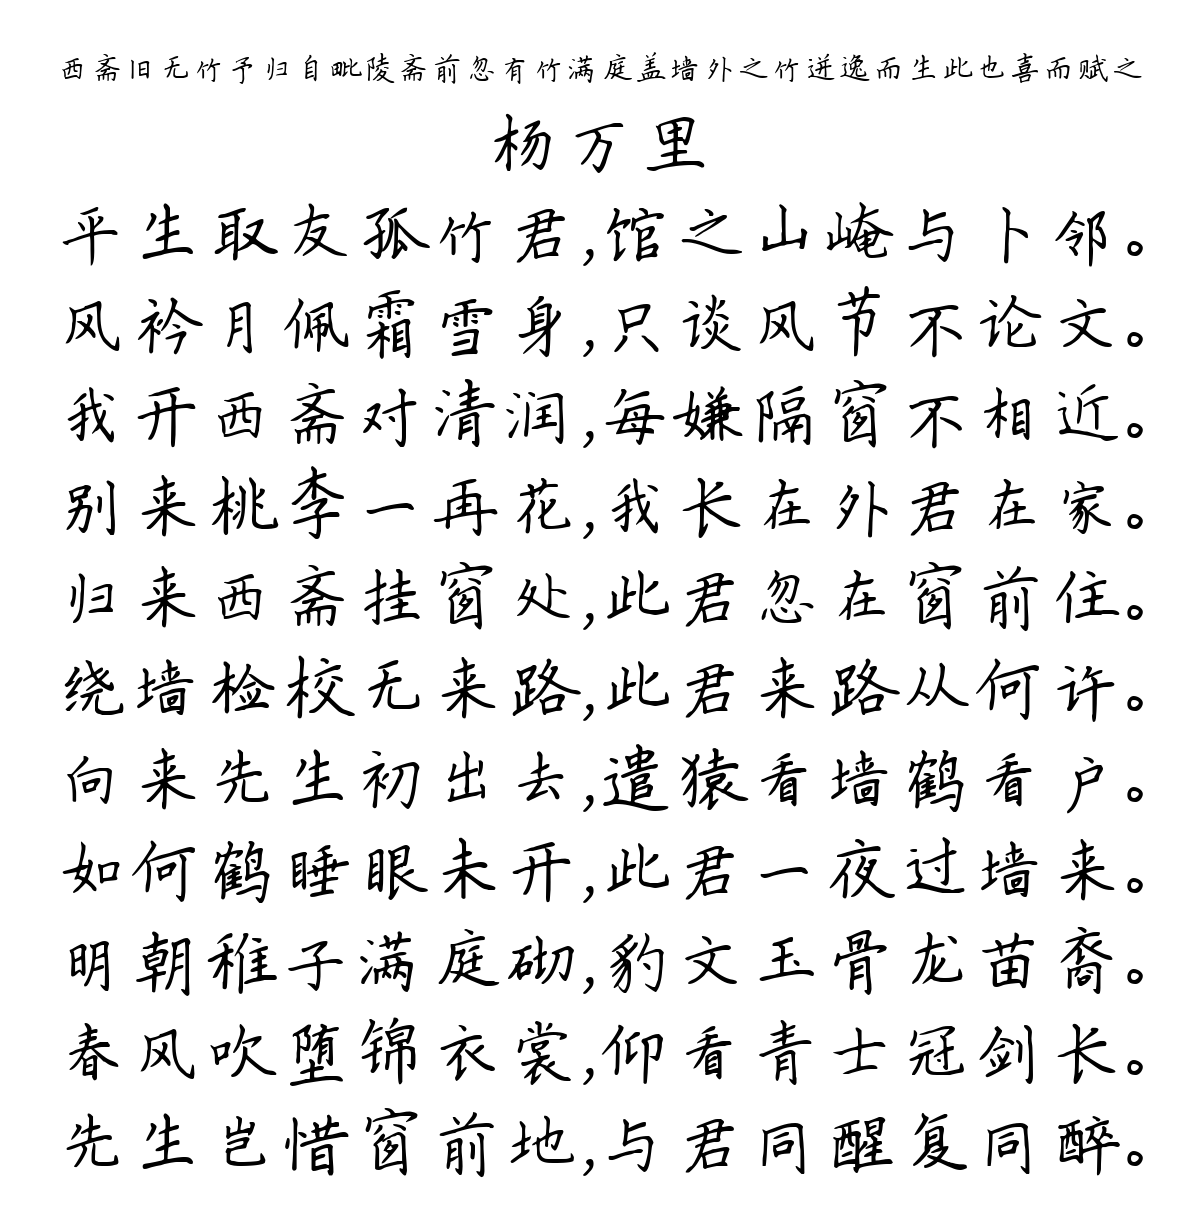 西斋旧无竹予归自毗陵斋前忽有竹满庭盖墙外之竹迸逸而生此也喜而赋之
杨万里
平生取友孤竹君,馆之山崦与卜邻。
风衿月佩霜雪身,只谈风节不论文。
我开西斋对清润,每嫌隔窗不相近。
别来桃李一再花,我长在外君在家。
归来西斋挂窗处,此君忽在窗前住。
绕墙检校无来路,此君来路从何许。
向来先生初出去,遣猿看墙鹤看户。
如何鹤睡眼未开,此君一夜过墙来。
明朝稚子满庭砌,豹文玉骨龙苗裔。
春风吹堕锦衣裳,仰看青士冠剑长。
先生岂惜窗前地,与君同醒复同醉。